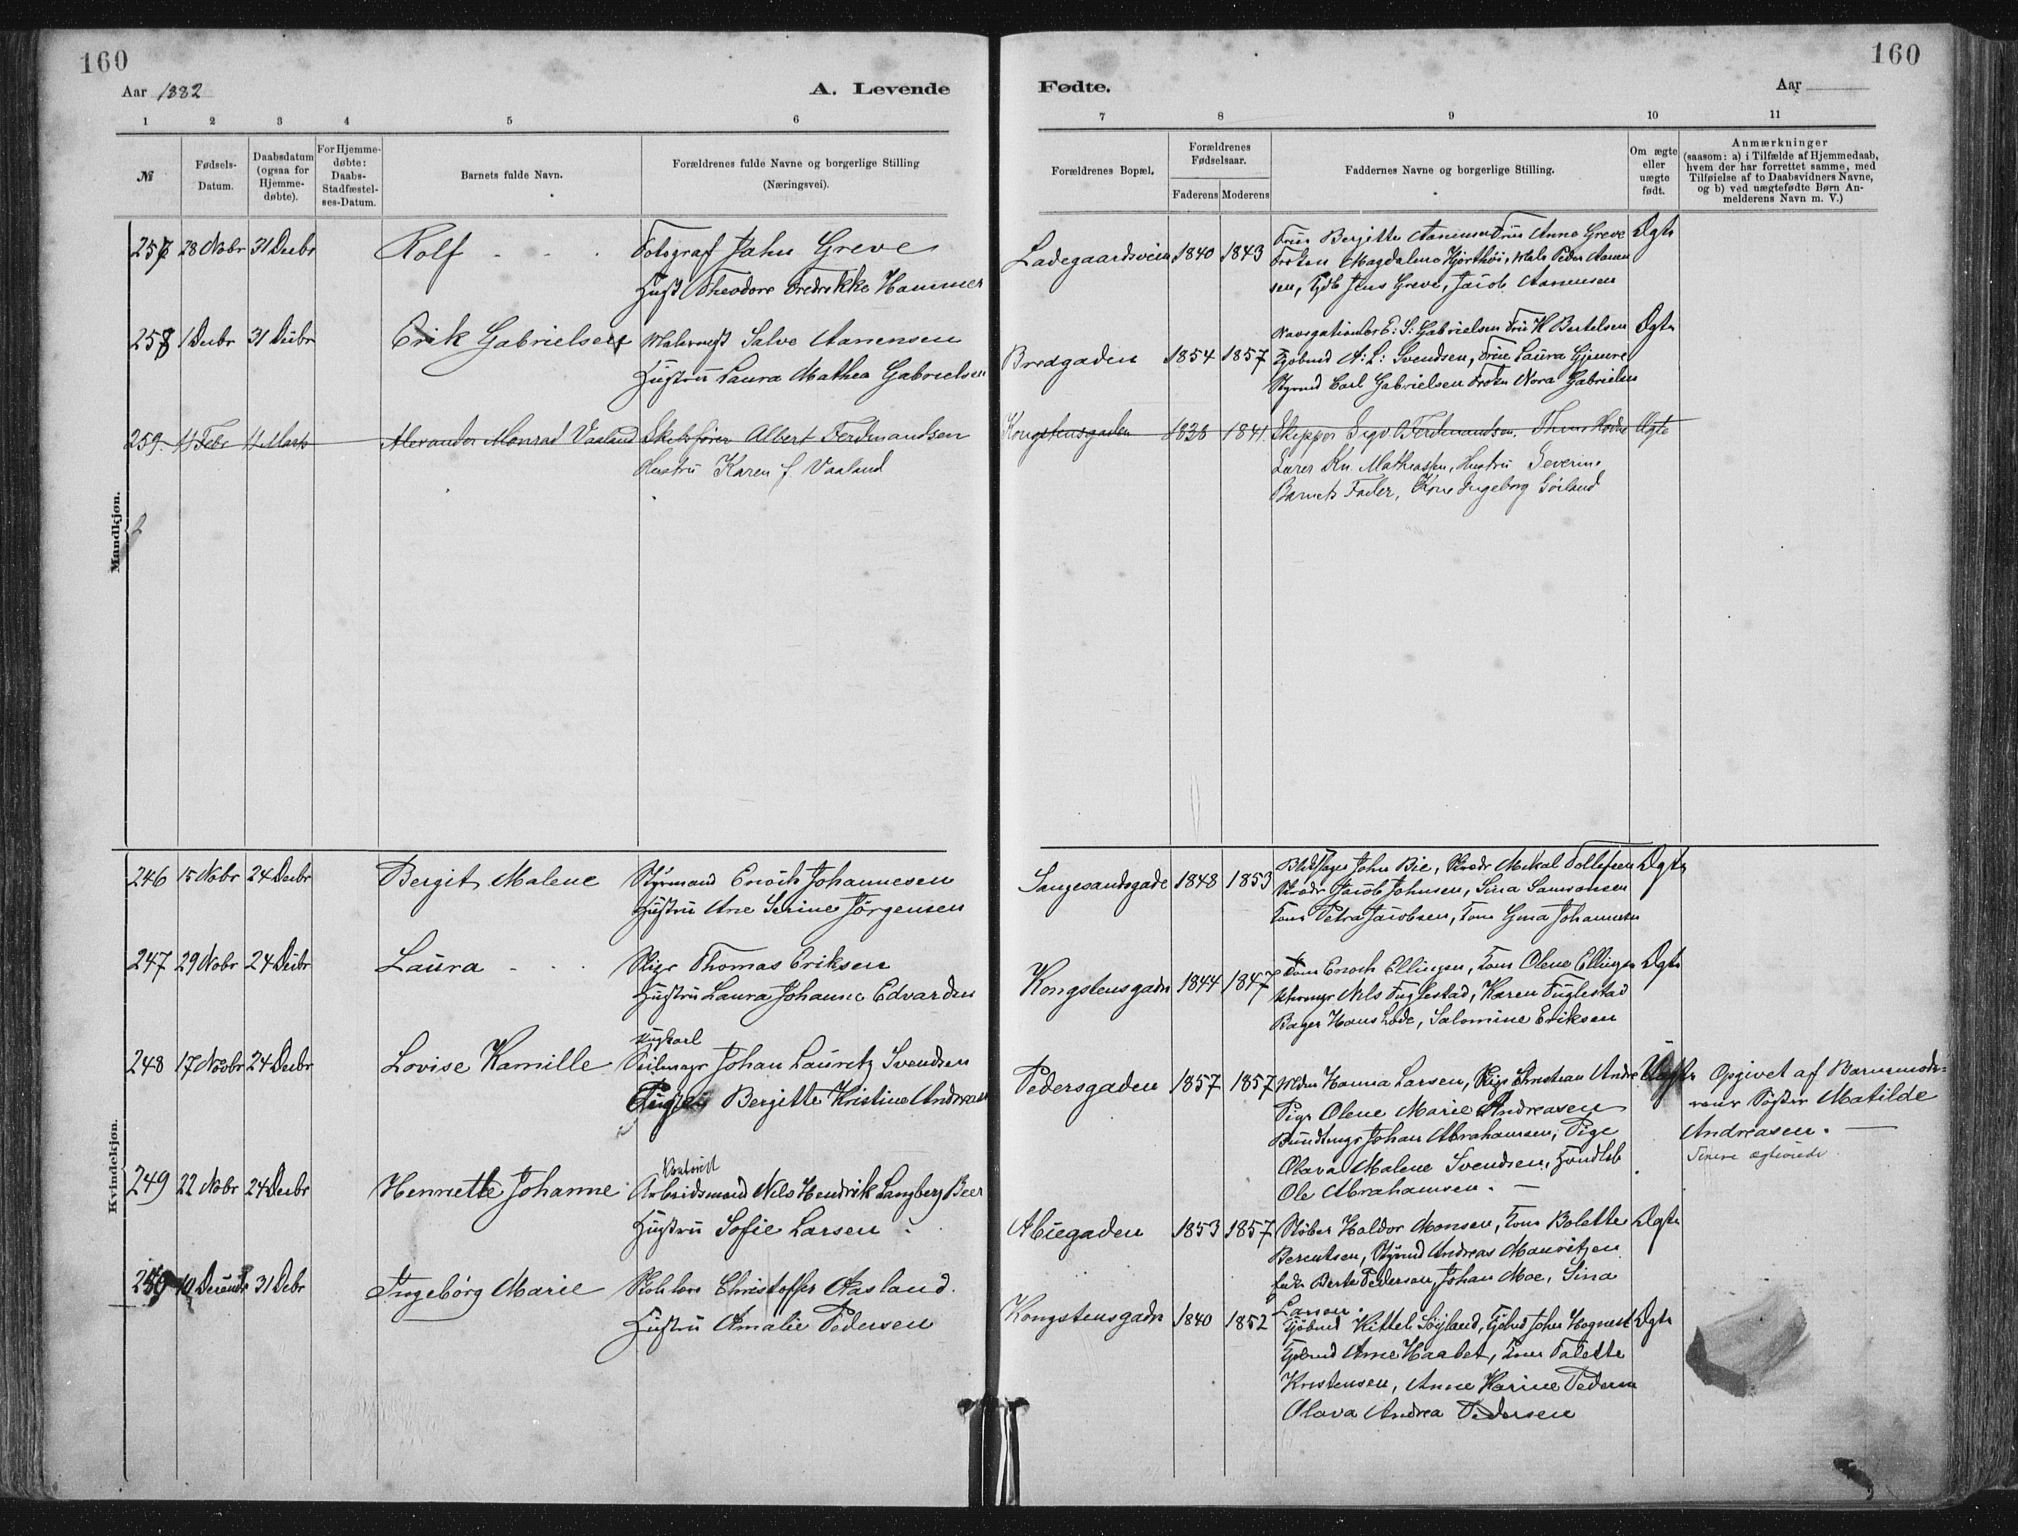 160
160
Aar 1882
A. Levende
Fødte.
Aar
1 2 3 4 5 6 7 8 9 10 11
№
Fødsels-
Datum.
Daabsdatum
(ogsaa for
Hjemme-
døbte).
For Hjemme-
døbte:
Daabs-
Stadfæstel-
ses-Datum.
Barnets fulde Navn.
Forældrenes fulde Navne og borgerlige Stilling
(Næringsvei).
Forældrenes Bopæl.
Forældrenes
Fødselsaar.
Faderens Moderens
Faddernes Navne og borgerlige Stilling.
Om ægte
eller
uægte
født.
Anmærkninger
(saasom: a) i Tilfælde af Hjemmedaab,
hvem der har forrettet samme, med
Tilføielse af to Daabsvidners Navne,
og b) ved uægtefødte Børn An-
melderens Navn m. V.)
Mandkjøn.
257 28 Nobr 31 Decbr Rolf Fotograf Jahn Greve
Hust Theodore Fredrikke Hammer
Ladegaardsveien 1840 1843 Fru Bergitte Aanensen Fru Anne Greve Ægte
Frøken Magdalene Hjorthøi, Mals Peder Aanen
sen, Jens Greve, Jacob Aanensen
258 1 Decbr 31 Decbr Erik Gabrielsen Malermst Salve Aanensen
Hustru Laura Mathea Gabrielsen
Bredgaden 1854 1857 E: S: Gabrielsen Fru H Bertelsen Ægte
Kjøbmd A: L: Svendsen, Frue Laura Gjemre
Styrmd Carl Gabrielsen Frøken Nora Gabrielsen
259. 4 Febr 4 Marts Alexander Monrad Vaaland Skibsfører Albert Ferdinandsen
Hustru Karen f. Vaaland
Kongstensgaden 1838 1841 Skipper Sigv O Ferdinandsen, Ægte
Lærer Kn. Mathiassen, Hustru Severine
Barnets Fader, Kone Ingeborg Goiland
Kvindekjøn.
246 15 Nobr 24 Decbr Bergit Malene Styrmand Enoch Johannesen
Hustru Ane Serine Jørgensen
Langesandsgade 1848 1853 John Bie, Mikal Tollefsen Ægte
Jacob Johnsen, Sina Samsonsen
Kone Petra Jacobsen, Kone Gina Johannesen
247 29 Nobr 24 Decbr Laura Thomas Eriksen
Hustru Laura Johanne Edvardsen
Kongstensgaden 1844 1847 Kone Enoch Ellingsen, Kone Olene Ellingsen Ægte
Nils Fuglestad, Karen Fuglestad
Bager Hans Lode, Salomine Eriksen
248 17 Novbr 24 Decbr Lovise Kamille Ungkarl
Seilmagr Johan Lauretz Svendsen
Pigen Bergitte Kristine Andreasen
Pedersgaden 1857 1857 Hanna Larsen, Christian Andre Uægte Opgivet af Barnemode-
rens Søster Matilde
Pige Olene Marie Andreasen
Andreasen.
Bundtmgr Johan Abrahamsen, Pige
Senere ægteviede.
Olava Malene Svendsen, Handelsb
Ole Abrahamsen.
249 22 Nobr 24 Decbr Henriette Johanne Arbeidsmand Nils Hendrik Langberg Beer
Hustru Sofie Larsen
Aluegaden 1853 1857 Støber Haldor Monsen, Kone Bolette Ægte
Berentsen, Styrmd Andreas Mauritzen
Berte Pedersen, Johan Moe, Sina
Larsen.
250 10 Decembr 31 Debr Ingeborg Marie Christoffer Aasland.
Hustru Amalie Pedersen
Kongstensgaden 1840 1852 Kjøbmd Kittel Søyland, Kjøbmd John Hognest Ægte
Kjøbmd Arne Haabet, Kone Talette
Kristensen, Anne Karine Pedersen
Olava Andrea Pedersen